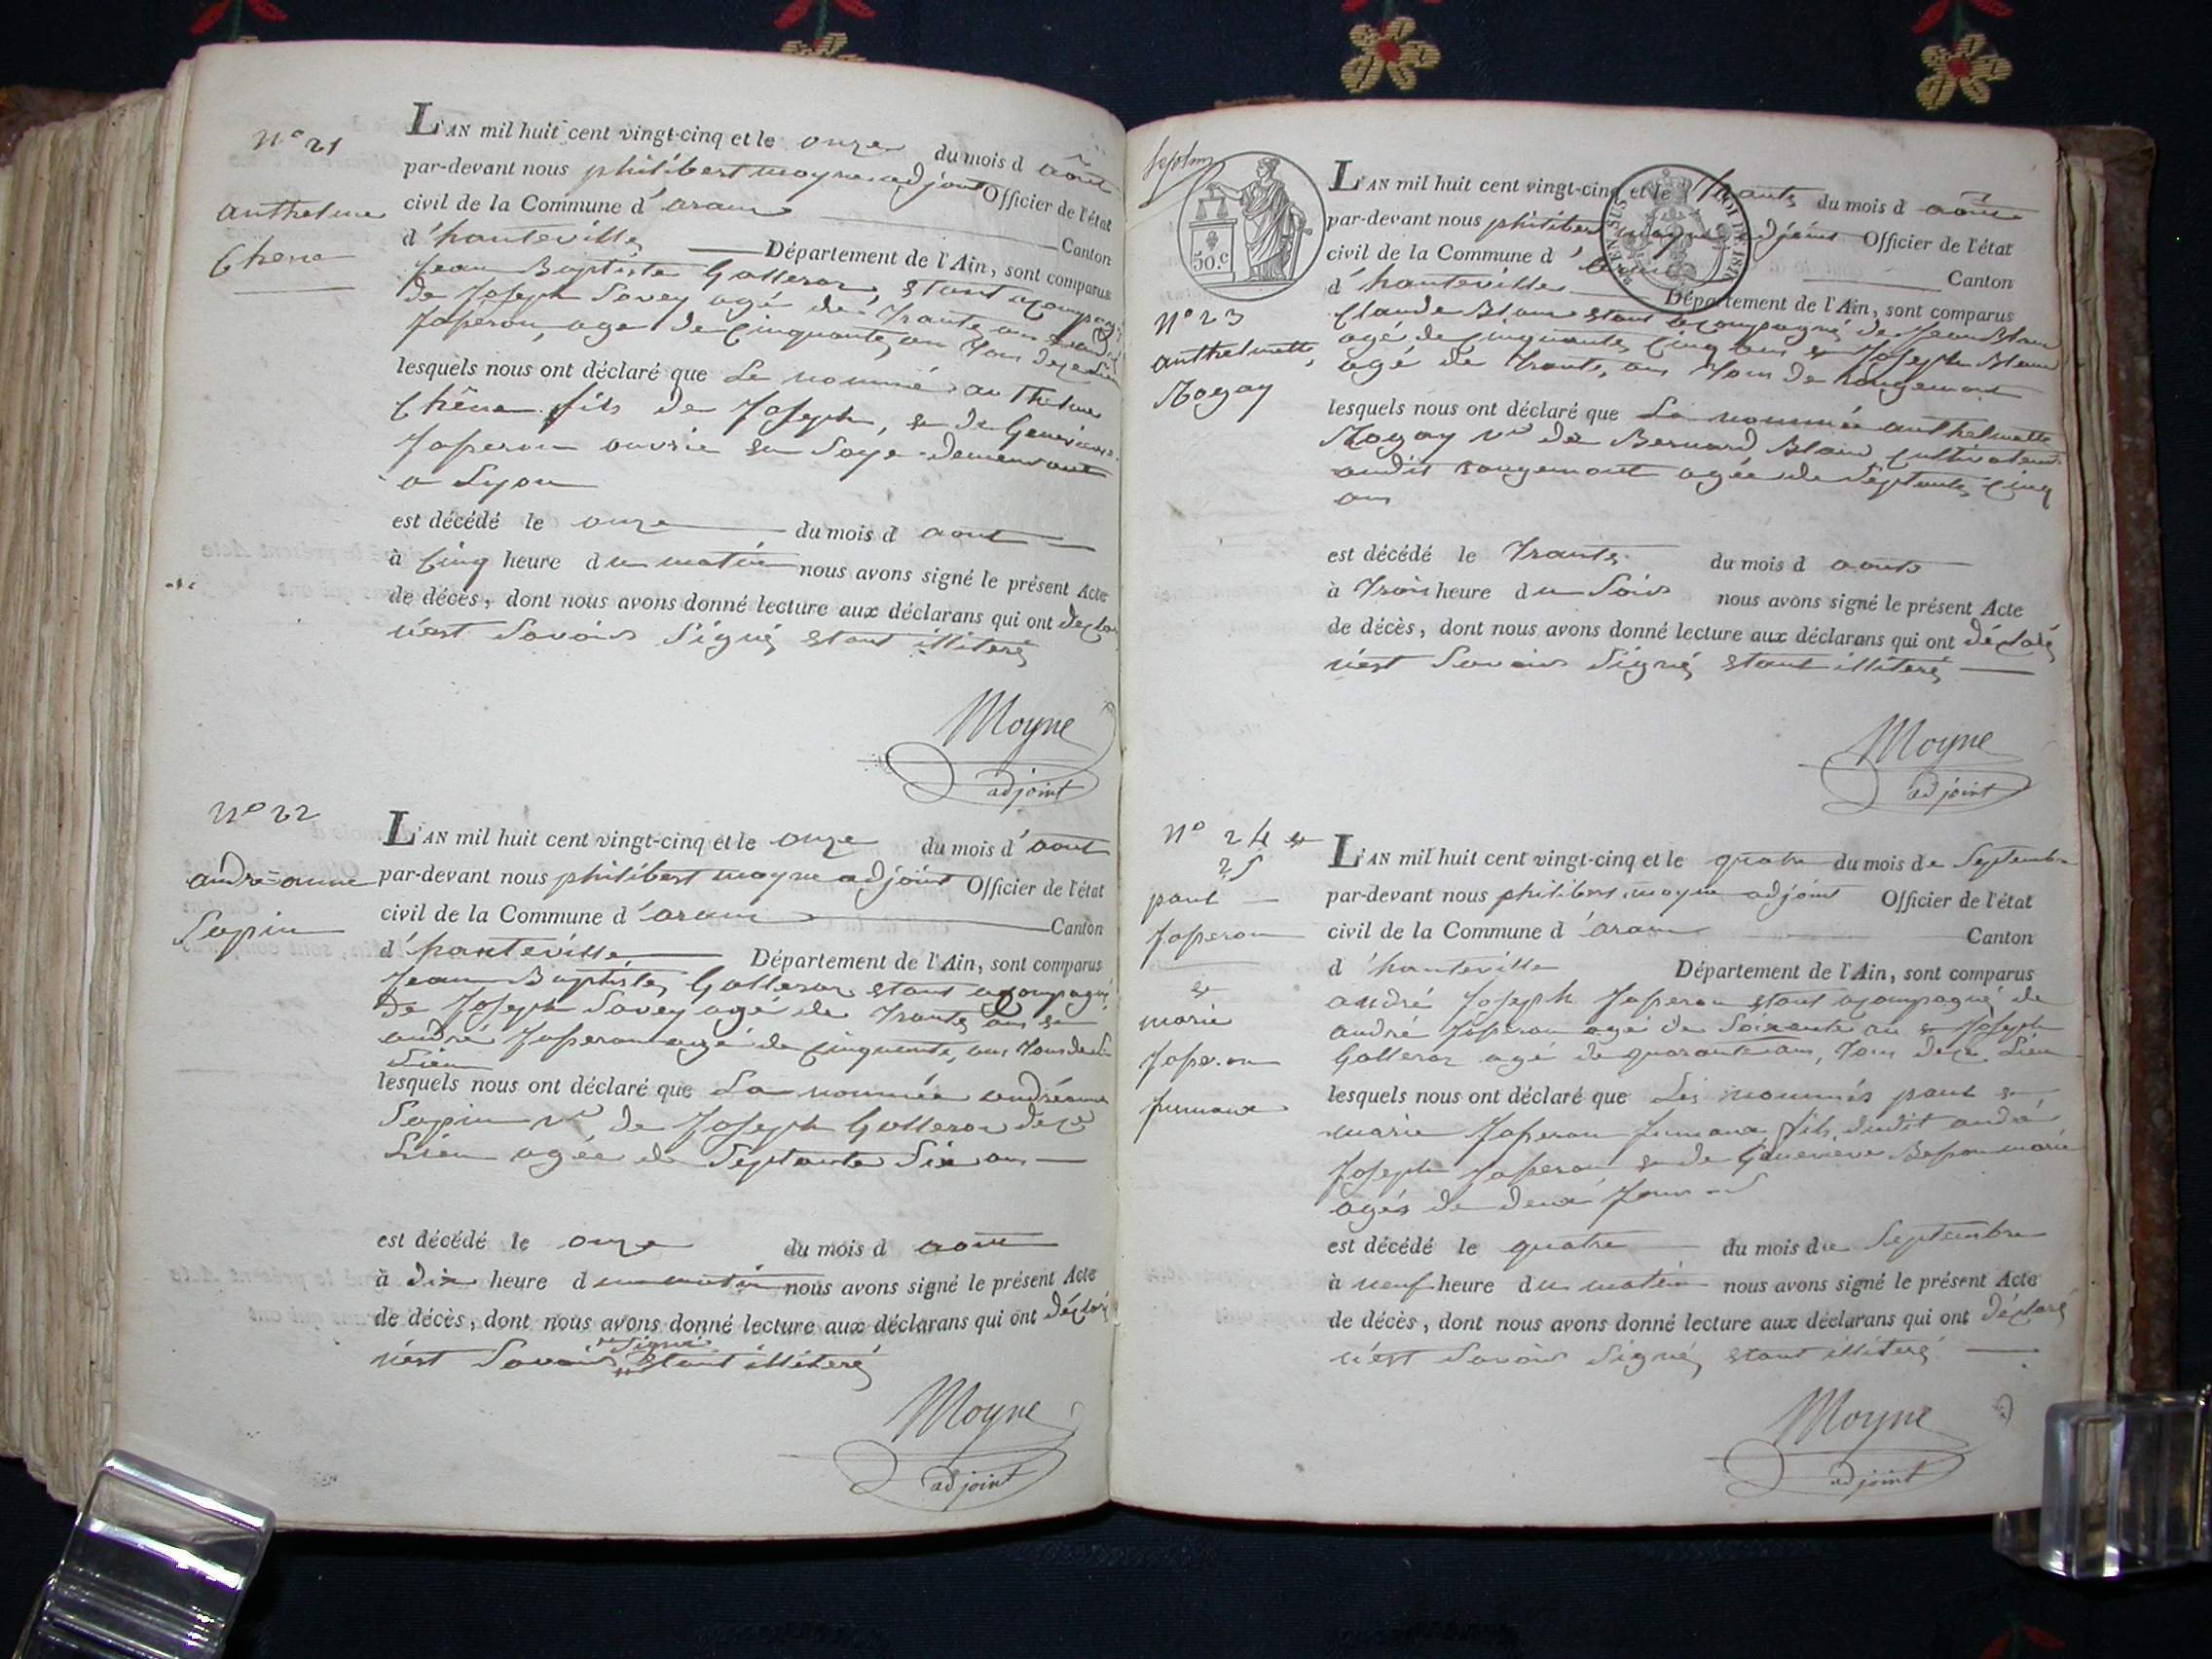 N° 21
anthelme
Chene
L'AN mil huit cent vingt-cinq et le onze du mois d août
par-devant nous philibert moyne adjoint Officier de l'état
civil de la Commune d'aranc
Canton
d'hauteville Département de l'Ain, sont comparus
Jean Baptiste Golleron étant acompagné
de Joseph Savey agé de Trante ans et andré
Joperon agé de cinquante ans Tous de ce Lieu
lesquels nous ont déclaré que Le nommé anthelme
Chêne fils de Joseph, et de Genevieve
Joperon ouvrie en Soye demeurant
a Lyon
est décédé le onze du mois d aout
à Cinq heure du matin nous avons signé le présent Acte
de décès, dont nous avons donné lecture aux déclarans qui ont déclaré
n'est Savoir Signé étant illiteré
Moyne
adjoint
N° 22
andré-anne
Sapin
L'AN mil huit cent vingt-cinq et le onze du mois d'aout
par-devant nous philibert moyne adjoint Officier de l'état
civil de la Commune d'aranc
Canton
d'hauteville Département de l'Ain, sont comparus
Jean Baptiste Golleron étant acompagné
de Joseph Savey agé de Trante ans et
andré Joperon agé de cinquante ans Tous de ce
Lieu
lesquels nous ont déclaré que La nommée andréanne
Sapin Ve de Joseph Golleron de ce
Lieu agée de Septante Six ans
est décédé le onze du mois d août
à dix heure du matin nous avons signé le présent Acte
de décès, dont nous avons donné lecture aux déclarans qui ont déclaré
n'est Savoir Signé étant illiteré
Moyne
adjoint
50.c
LOI DE 1816
N° 23
anthelmette
Mogay
L'AN mil huit cent vingt-cinq et le Trante du mois d août
par-devant nous philibert moyne adjoint Officier de l'état
civil de la Commune d'aranc
Canton
d'hauteville Département de l'Ain, sont comparus
Claude Blanc étant acompagné de Jean Blanc
agé de cinquante cinq ans et Joseph Blanc
agé de Trante ans Tous de rougemont
lesquels nous ont déclaré que La nommée anthelmette
Mogay Ve de Bernard Blanc cultivateur
audit rougemont agée de Septante Cinq
ans
est décédé le Trante du mois d aoute
à Trois heure du Soir nous avons signé le présent Acte
de décès, dont nous avons donné lecture aux déclarans qui ont déclaré
n'est Savoir Signé étant illiteré
Moyne
adjoint
N° 24 et
25
paul
Joperon
et
marie
Joperon
Jumaux
L'AN mil huit cent vingt-cinq et le quatre du mois de Septembre
par-devant nous philibert moyne adjoint Officier de l'état
civil de la Commune d'aranc
Canton
d'hauteville Département de l'Ain, sont comparus
andré Joseph Joperon étant acompagné de
andré Joperon agé de Soixante an et Joseph
Golleron agé de quarante ans, Tous de ce Lieu
lesquels nous ont déclaré que Les nommés paul et
marie Joperon Jumaux fils dudit andré
Joseph Joperon et de Genevieve Beson marié
agés de deux Jours
est décédé le quatre du mois de Septembre
à neuf heure du matin nous avons signé le présent Acte
de décès, dont nous avons donné lecture aux déclarans qui ont déclaré
n'est Savoir Signé étant illiteré
Moyne
adjoint